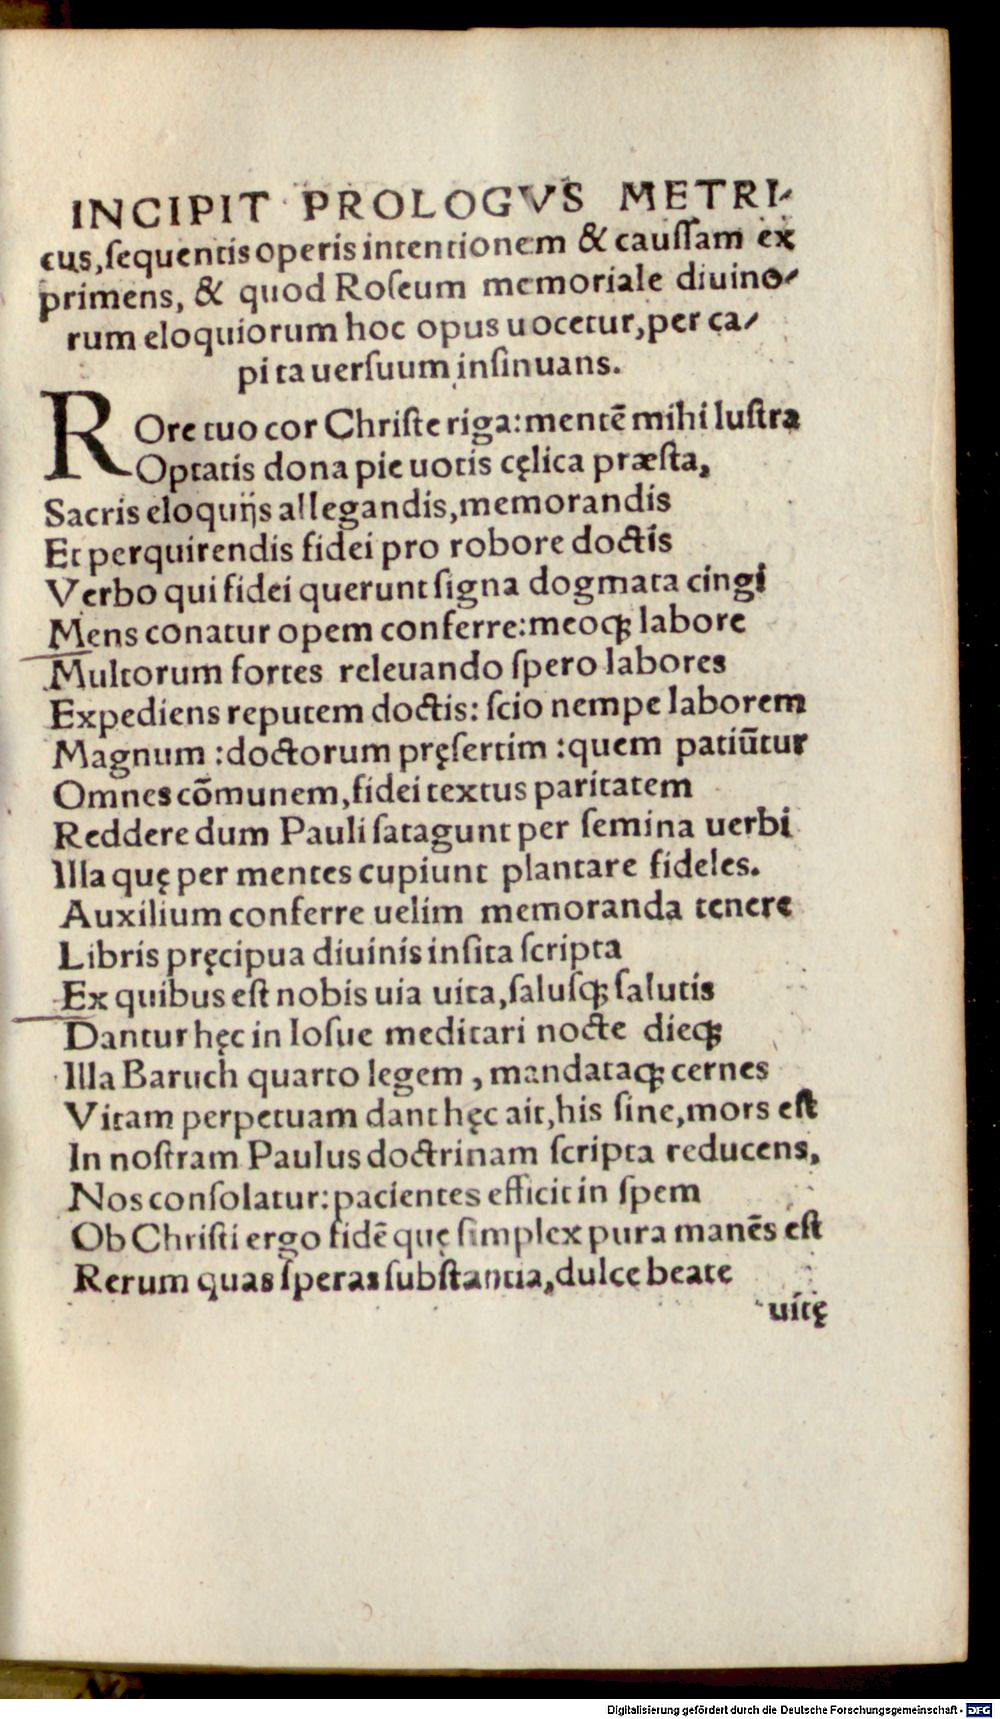 INCIPIT PROLOGVS METRI-
cus, ſequentis operis intentionem & cauſſam ex
primens, & quod Roſeum memoriale diuino-
rum eloquiorum hoc opus uocetur, per ca-
pita uerſuum inſinuans.
ROre tuo cor Chriſte riga: mentē mihi luſtra
Optatis dona pie uotis cęlica præſta,
Sacris eloquijs allegandis, memorandis
Et perquirendis fidei pro robore doctis
Verbo qui fidei querunt ſigna dogmata cingi
Mens conatur opem conferre: meoqꝫ labore
Multorum fortes releuando ſpero labores
Expediens reputem doctis: ſcio nempe laborem
Magnum : doctorum pręſertim : quem patiūtur
Omnes cōmunem, fidei textus paritatem
Reddere dum Pauli ſatagunt per ſemina uerbi
Illa quę per mentes cupiunt plantare fideles.
Auxilium conferre uelim memoranda tenere
Libris pręcipua diuinis inſita ſcripta
Ex quibus eſt nobis uia uita, ſaluſqꝫ ſalutis
Dantur hęc in Ioſue meditari nocte dieqꝫ
Illa Baruch quarto legem, mandataqꝫ cernes
Vitam perpetuam dant hęc ait, his ſine, mors eſt
In noſtram Paulus doctrinam ſcripta reducens,
Nos conſolatur: pacientes efficit in ſpem
Ob Chriſti ergo fidē quę ſimplex pura manēs eſt
Rerum quas ſperas ſubſtantia, dulce beate
uitę
Digitalisierung gefördert durch die Deutsche Forschungsgemeinschaft - DFG